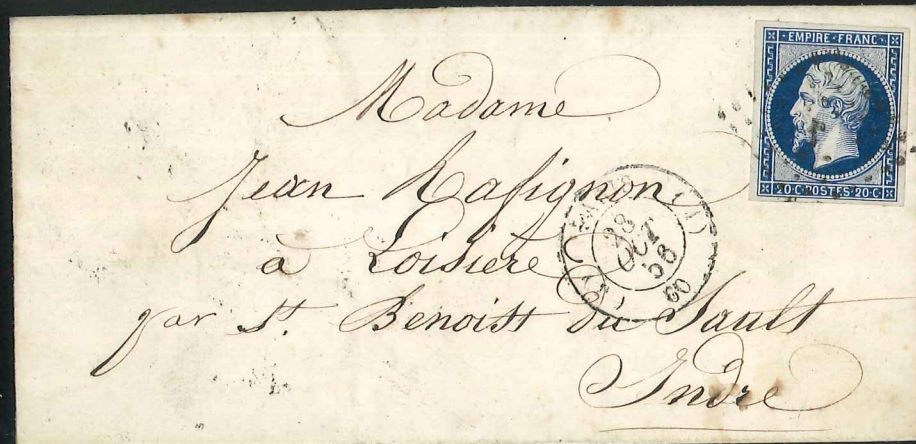 EMPIRE FRANC
20·C·POSTES·20·C
Madame
Jean Rafignon
à Loisiere
par St. Benoist du Sault
Indre
28
OCT
58
60